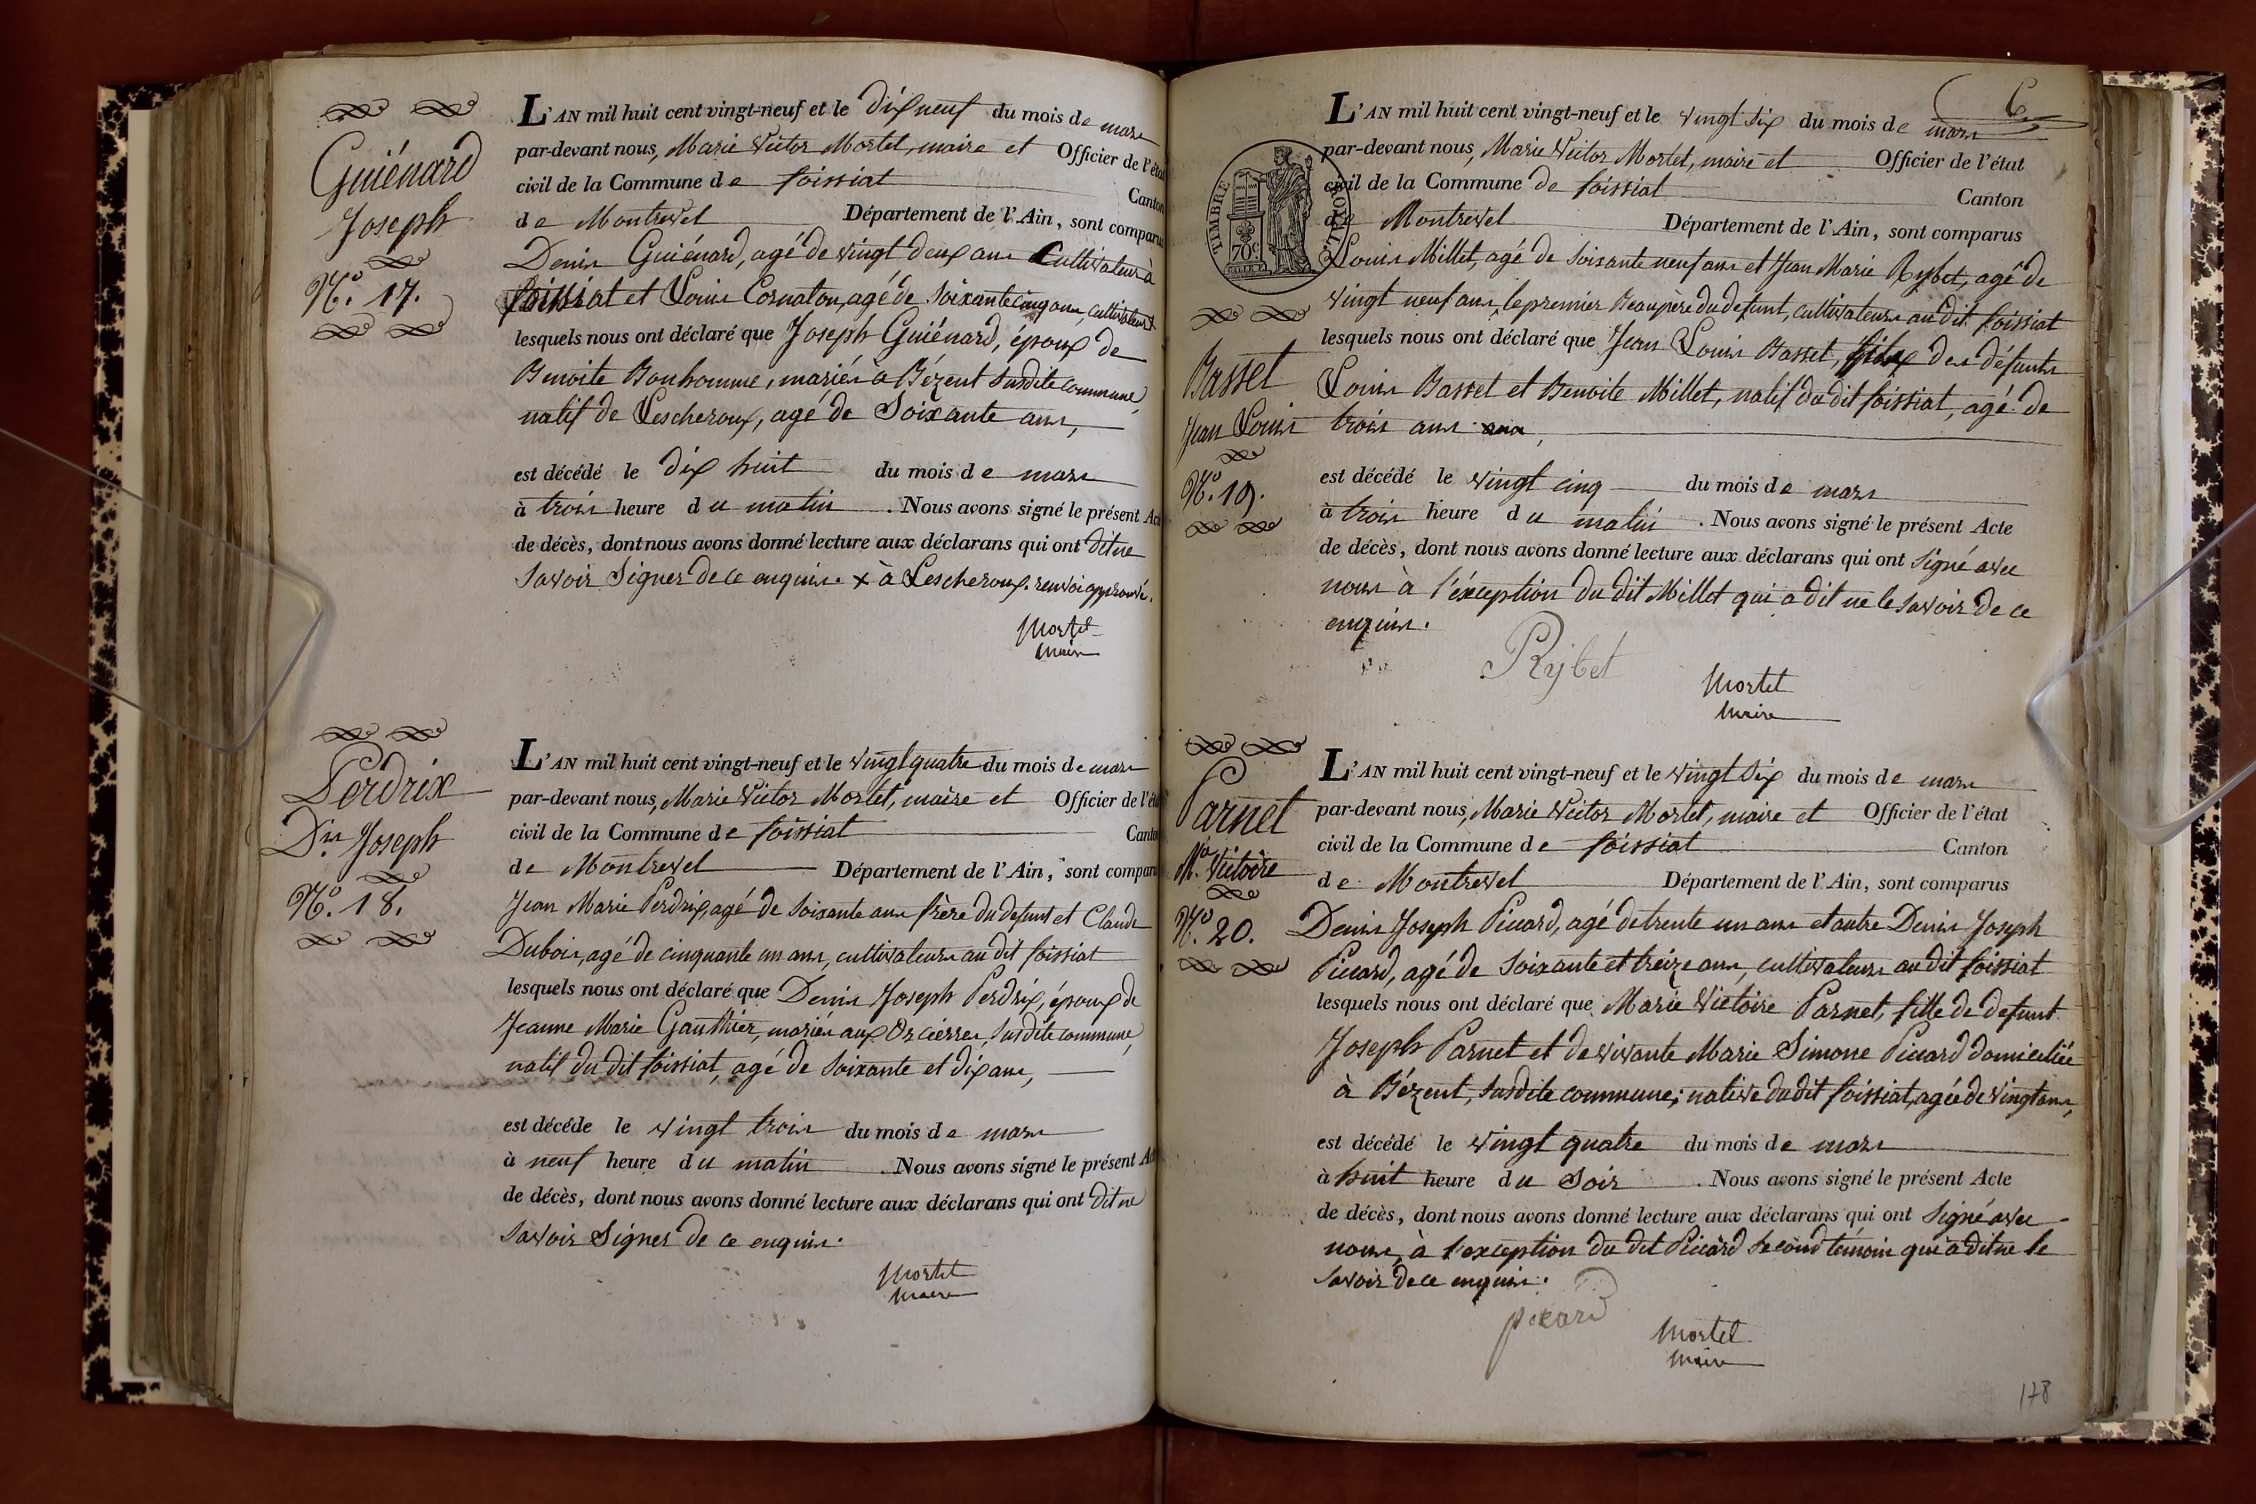 Guiénard
Joseph
N.º 17.
L'AN mil huit cent vingt-neuf et le dix neuf du mois de mars
par-devant nous, Marie Victor Mortet, maire et Officier de l'état
civil de la Commune de foissiat Canton
de Montrevel Département de l'Ain, sont comparus
Denis Guiénard, agé de vingt deux ans Cultivateur à
foissiat et Louis Cornaton, agé de soixante cinq ans, cultivateur x
lesquels nous ont déclaré que Joseph Guiénard, époux de
Benoite Bonhomme, mariés à Bézent susdite commune,
natif de Lescheroux, agé de Soixante ans,
est décédé le dix huit du mois de mars
à trois heure du matin . Nous avons signé le présent Acte
de décès, dont nous avons donné lecture aux déclarans qui ont dit ne
savoir Signer de ce enquis. x à Lescheroux. renvoi approuvé.
Mortet
Maire
Perdrix
D.is Joseph
N.º 18.
L'AN mil huit cent vingt-neuf et le vingt quatre du mois de mars
par-devant nous, Marie Victor Mortet, maire et Officier de l'état
civil de la Commune de foissiat Canton
de Montrevel Département de l'Ain, sont comparus
Jean Marie Perdrix, agé de soixante ans frère du defunt et Claude
Dubois, agé de cinquante un ans, cultivateurs au dit foissiat
lesquels nous ont déclaré que Denis Joseph Perdrix, époux de
Jeanne Marie Gauthier, mariés aux Orcières, susdite commune,
natif du dit foissiat, agé de soixante et dix ans,
est décédé le vingt trois du mois de mars
à neuf heure du matin . Nous avons signé le présent Acte
de décès, dont nous avons donné lecture aux déclarans qui ont dit ne
savoir Signer de ce enquis.
Mortet
Maire
6
TIMBRE
70c.
Basset
Jean Louis
N.º 19.
L'AN mil huit cent vingt-neuf et le vingt six du mois de mars
par-devant nous, Marie Victor Mortet, maire et Officier de l'état
civil de la Commune de foissiat Canton
de Montrevel Département de l'Ain, sont comparus
Louis Millet, agé de soixante neuf ans et Jean Marie Rybet, agé de
vingt neuf ans, le premier Beaupère du defunt, cultivateurs au dit foissiat
lesquels nous ont déclaré que Jean Louis Basset, fils des défunts
Louis Basset et Benoite Millet, natif du dit foissiat, agé de
trois ans
est décédé le vingt cinq du mois de mars
à trois heure du matin . Nous avons signé le présent Acte
de décès, dont nous avons donné lecture aux déclarans qui ont signé avec
nous à l'éxception du dit Millet qui a dit ne le savoir de ce
enquis.
Rybet
Mortet
Maire
Parnet
M.ie Victoire
N.º 20.
L'AN mil huit cent vingt-neuf et le vingt six du mois de mars
par-devant nous, Marie Victor Mortet, maire et Officier de l'état
civil de la Commune de foissiat Canton
de Montrevel Département de l'Ain, sont comparus
Denis Joseph Piccard, agé de trente un ans et autre Denis Joseph
Piccard, agé de soixante et treize ans, cultivateurs au dit foissiat
lesquels nous ont déclaré que Marie Victoire Parnet, fille de defunt
Joseph Parnet et de vivante Marie Simone Piccard domiciliée
à Bézent, susdite commune; native du dit foissiat, agée de vingt ans,
est décédé le vingt quatre du mois de mars
à huit heure du soir . Nous avons signé le présent Acte
de décès, dont nous avons donné lecture aux déclarans qui ont signé avec
nous, à l'exception du dit Piccard second témoin qui a dit ne le
savoir de ce enquis.
picard
Mortet
Maire
178